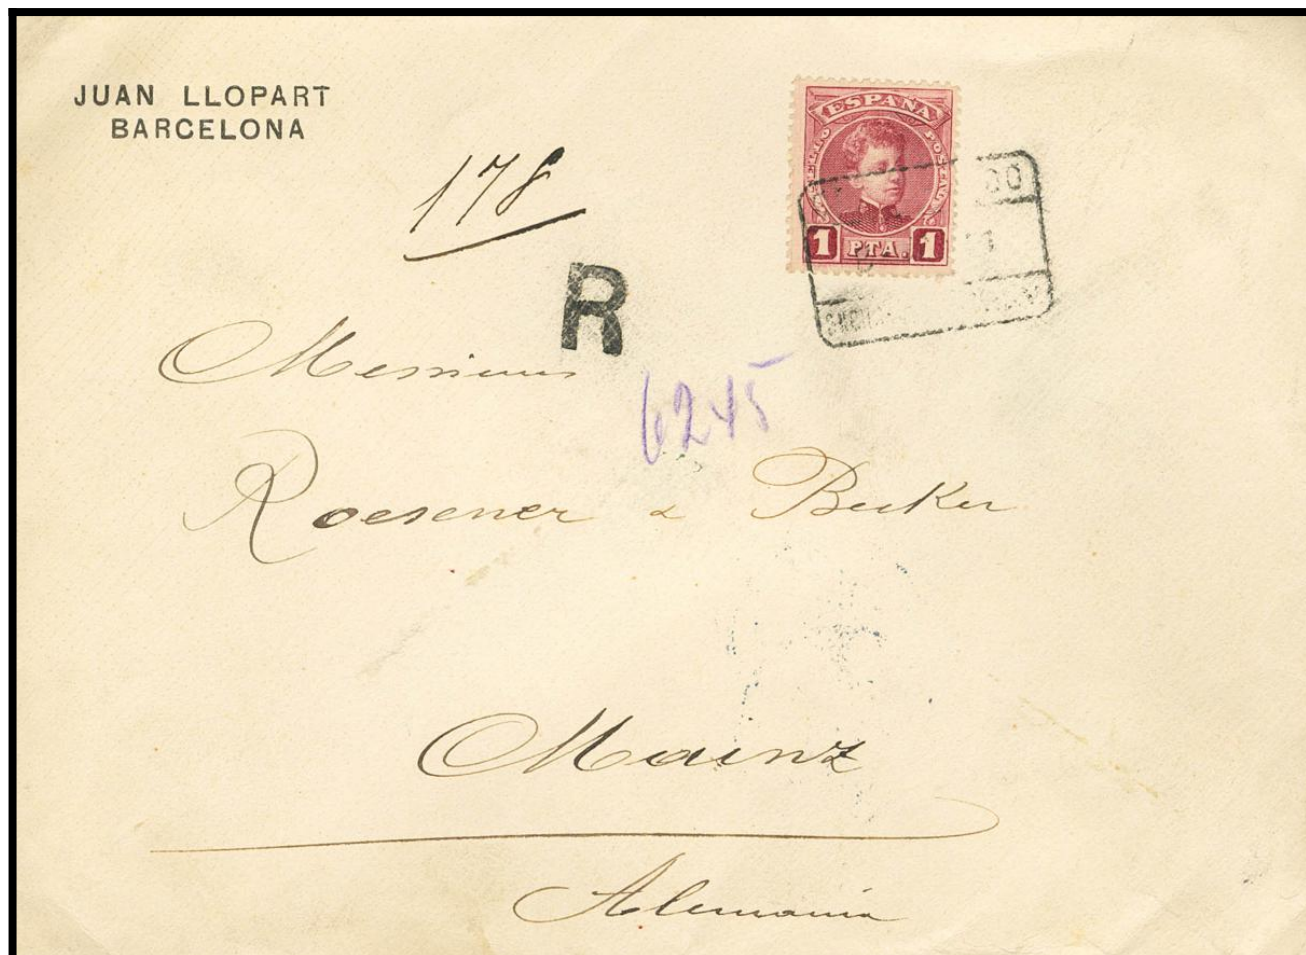 JUAN LLOPART
BARCELONA
178
ESPAÑA
1 PTA. 1
R
Messieurs
6245
Roesener & Becker
Mainz
Alemania